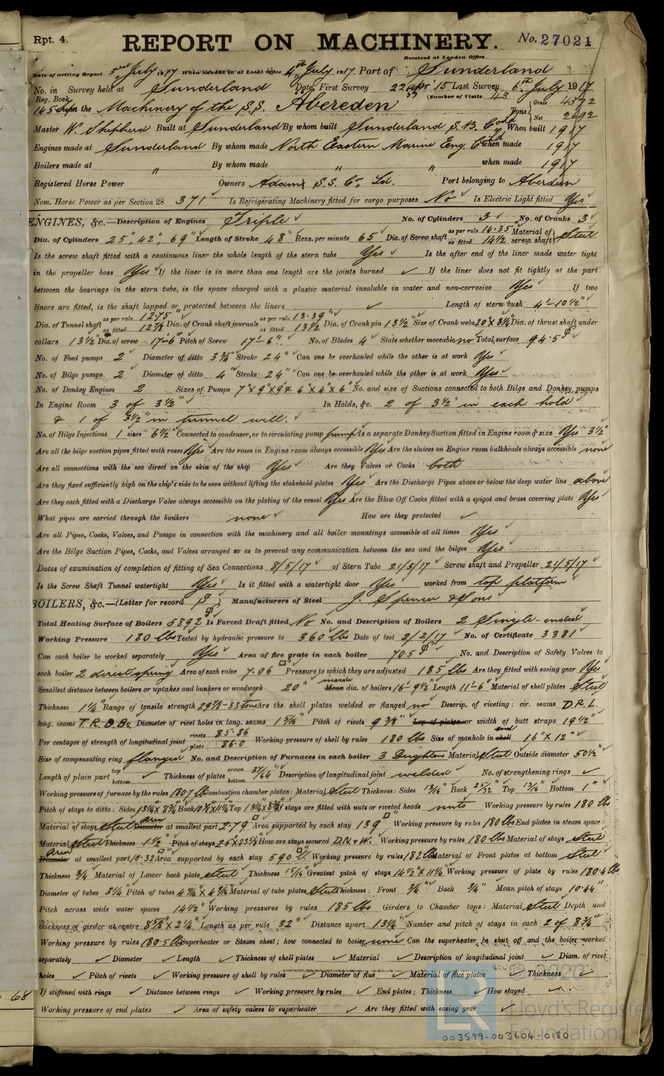 Rpt. 4.
REPORT ON MACHINERY. No. 27021
Received at London Office
Date of writing Report 3rd July 1917 When handed in at Local Office 4th July 1917 Port of Sunderland
No. in Survey held at Sunderland Date, First Survey 22 Apr 15 Last Survey, July 1917
Reg. Book. (Number of Visits 43
145 Sup on the Machinery of the S.S. Abereden Tons Gross Net 2692
Master W. Shepherd Built at Sunderland By whom built Sunderland S.B. Co Ltd When built 1917
Engines made at Sunderland By whom made North Eastern Marine Eng. Co Ltd when made 1917
Boilers made at " By whom made " when made 1917
Registered Horse Power Owners Adam S.S. Co Ld. Port belonging to Aberdeen
Nom. Horse Power as per Section 28 371 Is Refrigerating Machinery fitted for cargo purposes No Is Electric Light fitted Yes
ENGINES, &c.—Description of Engines Triple No. of Cylinders 3 No. of Cranks 3
Dia. of Cylinders 25", 42", 69" Length of Stroke 48" Revs. per minute 65 Dia. of Screw shaft as per rule 14.35 as fitted 14½ Material of screw shaft Steel
Is the screw shaft fitted with a continuous liner the whole length of the stern tube Yes Is the after end of the liner made water tight
in the propeller boss Yes If the liner is in more than one length are the joints burned ✓ If the liner does not fit tightly at the part
between the bearings in the stern tube, is the space charged with a plastic material insoluble in water and non-corrosive Yes If two
liners are fitted, is the shaft lapped or protected between the liners ✓ Length of stern bush 4'-10½"
Dia. of Tunnel shaft as per rule 12.75" as fitted 12⅞ Dia. of Crank shaft journals as per rule 13.39" as fitted 13½ Dia. of Crank pin 13½" Size of Crank webs 20 x 8¾ Dia. of thrust shaft under
collars 13½" Dia. of screw 17-6" Pitch of Screw 17-6" No. of Blades 4 State whether moveable no Total surface 94.5
No. of Feed pumps 2 Diameter of ditto 3¾" Stroke 24" Can one be overhauled while the other is at work Yes
No. of Bilge pumps 2 Diameter of ditto 4" Stroke 24" Can one be overhauled while the other is at work Yes
No. of Donkey Engines 2 Sizes of Pumps 7"x9"x9 & 6"x4"x6" No. and size of Suctions connected to both Bilge and Donkey pumps
In Engine Room 3 of 3½" In Holds, &c. 2 of 3½" in each hold
& 1 of 3½" in tunnel well.
No. of Bilge Injections 1 sizes 6½" Connected to condenser, or to circulating pump pump Is a separate Donkey Suction fitted in Engine room & size Yes 3½"
Are all the bilge suction pipes fitted with roses Yes Are the roses in Engine room always accessible Yes Are the sluices on Engine room bulkheads always accessible none
Are all connections with the sea direct on the skin of the ship Yes Are they Valves or Cocks both
Are they fixed sufficiently high on the ship's side to be seen without lifting the stokehold plates Yes Are the Discharge Pipes above or below the deep water line above
Are they each fitted with a Discharge Valve always accessible on the plating of the vessel Yes Are the Blow Off Cocks fitted with a spigot and brass covering plate Yes
What pipes are carried through the bunkers none How are they protected ✓
Are all Pipes, Cocks, Valves, and Pumps in connection with the machinery and all boiler mountings accessible at all times Yes
Are the Bilge Suction Pipes, Cocks, and Valves arranged so as to prevent any communication between the sea and the bilges Yes
Dates of examination of completion of fitting of Sea Connections 8/5/17 of Stern Tube 21/5/17 Screw shaft and Propeller 21/5/17
Is the Screw Shaft Tunnel watertight Yes Is it fitted with a watertight door Yes worked from top platform
BOILERS, &c.—(Letter for record S) Manufacturers of Steel J. Spencer & Sons
Total Heating Surface of Boilers 5892 Is Forced Draft fitted No No. and Description of Boilers 2 Single-ended
Working Pressure 180 lbs Tested by hydraulic pressure to 360 lbs Date of test 2/2/17 No. of Certificate 3381
Can each boiler be worked separately Yes Area of fire grate in each boiler 70.5 No. and Description of Safety Valves to
each boiler 2 direct spring Area of each valve 7.06 Pressure to which they are adjusted 185 lbs Are they fitted with easing gear Yes
Smallest distance between boilers or uptakes and bunkers or woodwork 20" Mean inside dia. of boilers 16'-9½" Length 11'-6" Material of shell plates Steel
Thickness 1¼" Range of tensile strength 29½-33 tons Are the shell plates welded or flanged no Descrip. of riveting: cir. seams D.R.L.
long. seams T.R.D.B.S. Diameter of rivet holes in long. seams 1 5/16" Pitch of rivets 9¾" Lap of plates or width of butt straps 19½"
Per centages of strength of longitudinal joint rivets 85.86 plate 86.0 Working pressure of shell by rules 180 lbs Size of manhole in shell end 16" x 12"
Size of compensating ring flanged No. and Description of Furnaces in each boiler 3 Deightons Material Steel Outside diameter 50½"
Length of plain part top bottom ✓ Thickness of plates crown bottom 37/64 Description of longitudinal joint welded No. of strengthening rings ✓
Working pressure of furnace by the rules 180 lbs Combustion chamber plates: Material Steel Thickness: Sides Back Top Bottom 1"
Pitch of stays to ditto: Sides Back Top If stays are fitted with nuts or riveted heads nuts Working pressure by rules 180 lbs
Material of stays Steel Area at smallest part 2.79 Area supported by each stay 139 Working pressure by rules 180 lbs End plates in steam space:
Material Steel Thickness Pitch of stays How are stays secured D.N.& W. Working pressure by rules 180 lbs Material of stays Steel
Area at smallest part 10.32 Area supported by each stay 590 Working pressure by rules 182 lbs Material of Front plates at bottom Steel
Thickness ¾ Material of Lower back plate Steel Thickness Greatest pitch of stays 14½ x 11½ Working pressure of plate by rules 180 lbs
Diameter of tubes 3¼ Pitch of tubes Material of tube plates Steel Thickness: Front ¾" Back ¾" Mean pitch of stays 10.44"
Pitch across wide water spaces 14½" Working pressures by rules 185 lbs Girders to Chamber tops: Material Steel Depth and
thickness of girder at centre Length as per rule 32" Distance apart 13¼" Number and pitch of stays in each 2 of 8¾"
Working pressure by rules 180.5 lbs Superheater or Steam chest; how connected to boiler none Can the superheater be shut off and the boiler worked
separately ✓ Diameter ✓ Length ✓ Thickness of shell plates ✓ Material ✓ Description of longitudinal joint ✓ Diam. of rivet
holes ✓ Pitch of rivets ✓ Working pressure of shell by rules ✓ Diameter of flue ✓ Material of flue plates ✓ Thickness ✓
If stiffened with rings ✓ Distance between rings ✓ Working pressure by rules ✓ End plates: Thickness ✓ How stayed ✓
Working pressure of end plates ✓ Area of safety valves to superheater ✓ Are they fitted with easing gear ✓
68
© 2020
LR
Lloyd's Register
Foundation
003599-003604-0180